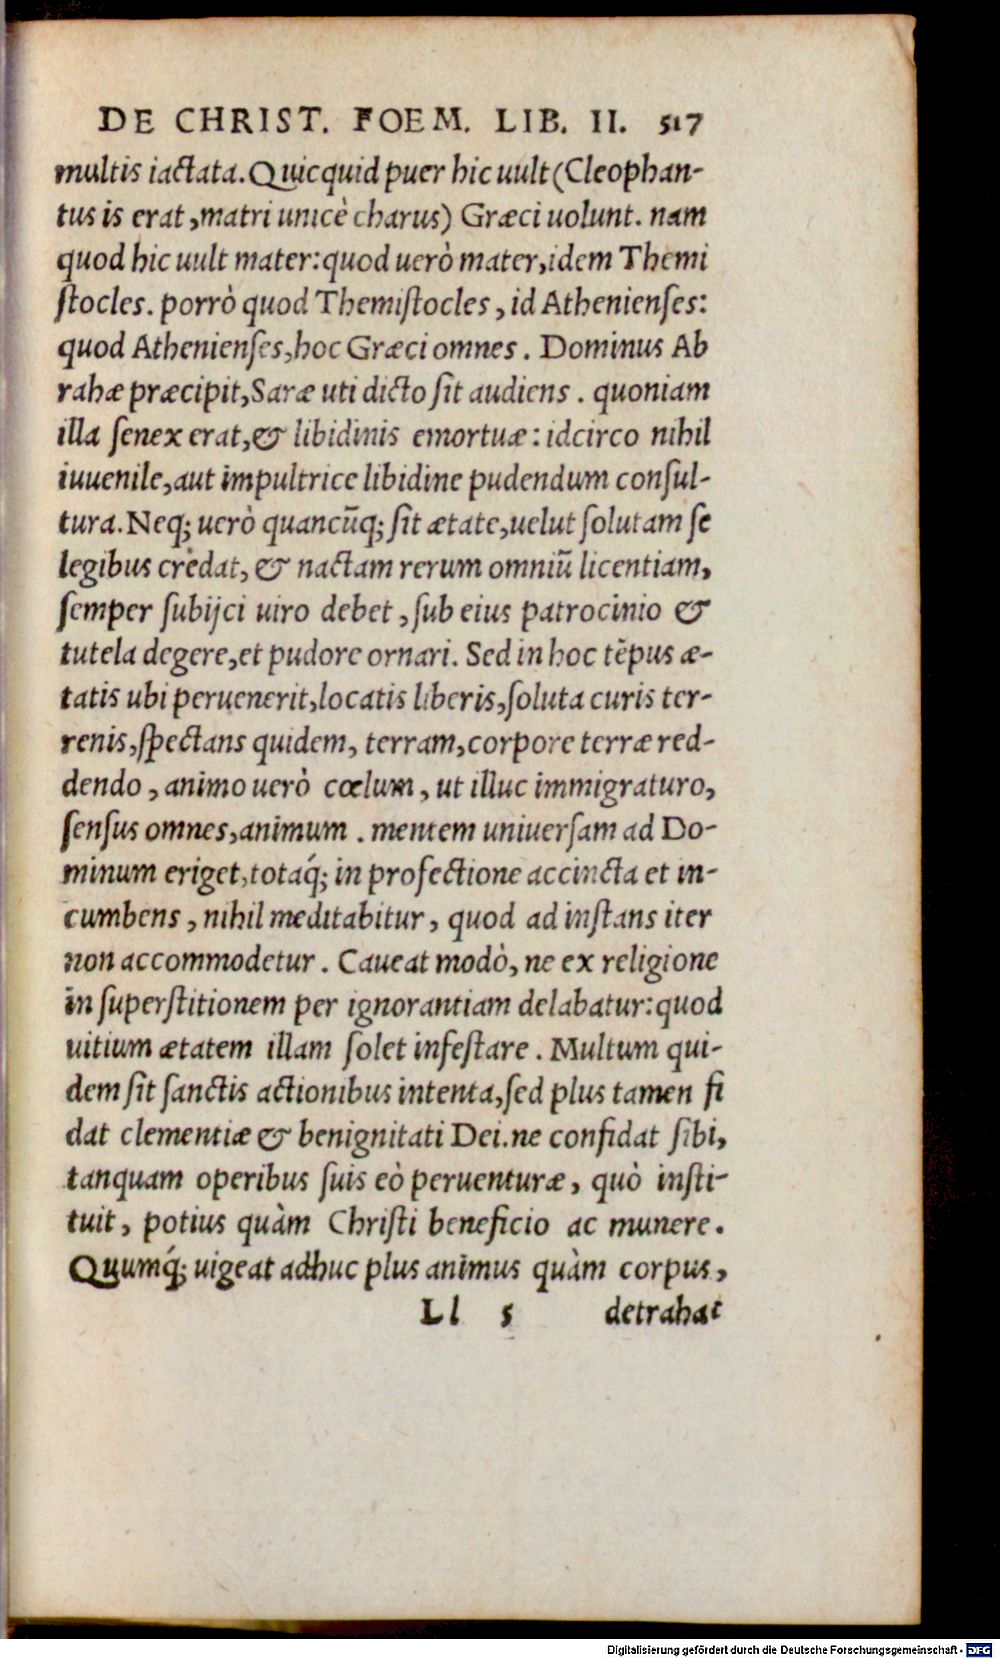 DE CHRIST. FOEM. LIB. II. 517
multis iactata. Quicquid puer hic uult (Cleophan-
tus is erat, matri unicè charus) Græci uolunt. nam
quod hic uult mater: quod uerò mater, idem Themi
ſtocles. porrò quod Themiſtocles, id Athenienſes:
quod Athenienſes, hoc Græci omnes. Dominus Ab
rahæ præcipit, Saræ uti dicto ſit audiens. quoniam
illa ſenex erat, & libidinis emortuæ: idcirco nihil
iuuenile, aut impultrice libidine pudendum conſul-
tura. Neq; uerò quancũq; ſit ætate, uelut ſolutam ſe
legibus credat, & nactam rerum omniũ licentiam,
ſemper ſubijci uiro debet, ſub eius patrocinio &
tutela degere, et pudore ornari. Sed in hoc tẽpus æ-
tatis ubi peruenerit, locatis liberis, ſoluta curis ter-
renis, ſpectans quidem, terram, corpore terræ red-
dendo, animo uerò cœlum, ut illuc immigraturo,
ſenſus omnes, animum. mentem uniuerſam ad Do-
minum eriget, totaq́; in profectione accincta et in-
cumbens, nihil meditabitur, quod ad inſtans iter
non accommodetur. Caueat modò, ne ex religione
in superſtitionem per ignorantiam delabatur: quod
uitium ætatem illam ſolet infeſtare. Multum qui-
dem ſit ſanctis actionibus intenta, ſed plus tamen fi
dat clementiæ & benignitati Dei. ne confidat ſibi,
tanquam operibus ſuis eò peruenturæ, quò inſti-
tuit, potius quàm Chriſti beneficio ac munere.
Quumq́; uigeat adhuc plus animus quàm corpus,
Ll 5 detrahat
Digitalisierung gefördert durch die Deutsche Forschungsgemeinschaft - DFG